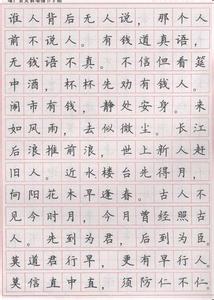 谁人背后无人说，那个人
前不说人。有钱道真语，
无钱语不真。不信但看筵
中酒，杯杯先劝有钱人。
闹市有钱，静处安身。来
如风雨，去似微尘。长江
后浪推前浪，世上新人赶
旧人。近水楼台先得月，
向阳花木早逢春。古人不
见今时月，今月曾经照古
人。先到为君，后到为臣。
莫道君行早，更有早行人。
莫信直中直，须防仁不仁。